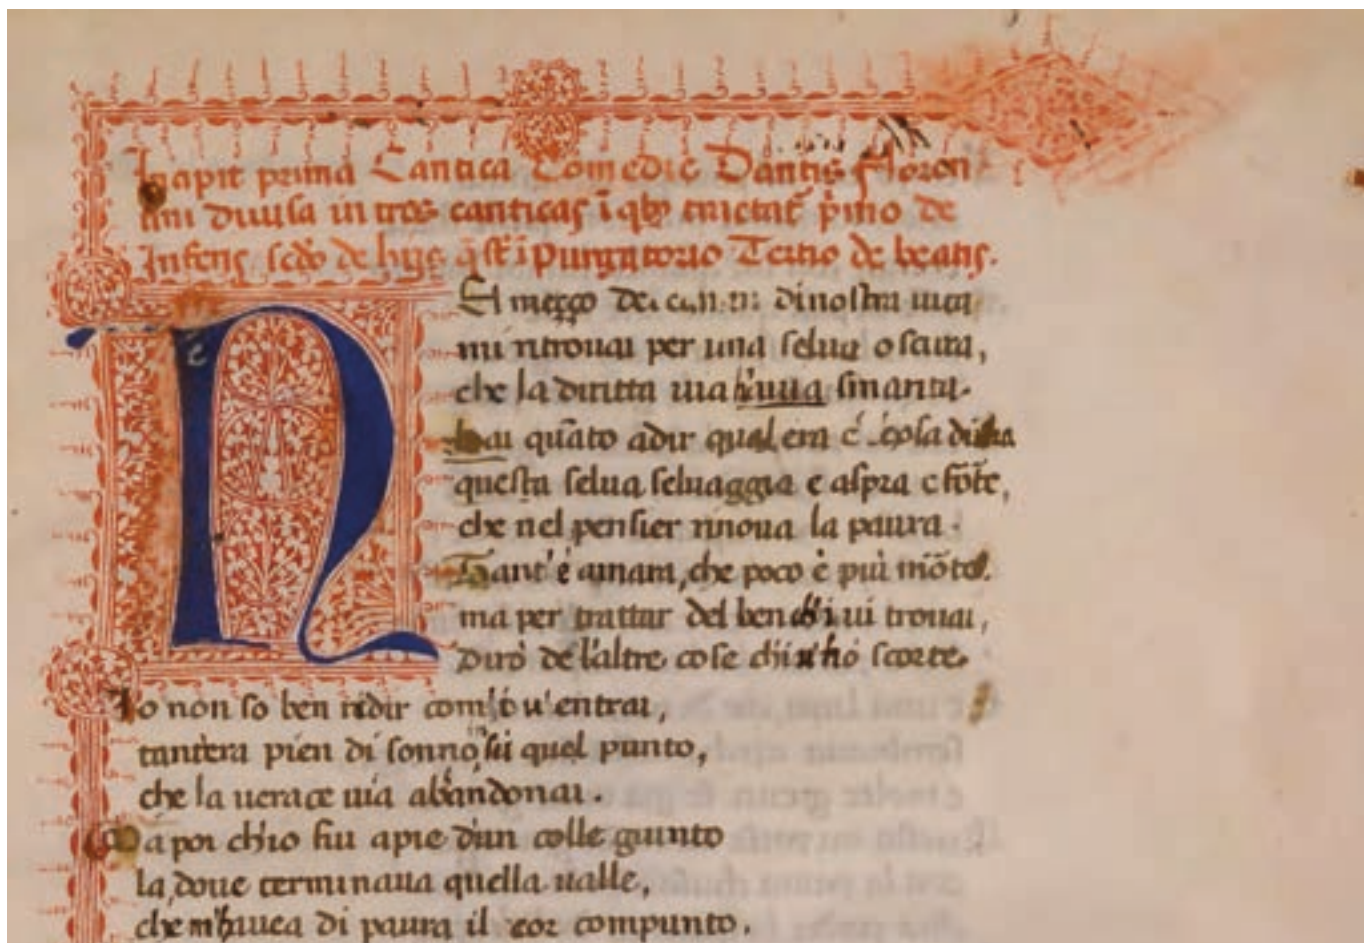 Incipit prima Cantica Comedie Dantis Floren
tini diuisa in tres canticas ī qb; tractat̄ p̍mo de
Inferis scđo de hijs q̄ st̄ ī purgatorio Tertio de beatis.
N El mezzo dinostra uita
mi ritrouai per una selua oscura,
che la diritta uia smarita.
quāto adir qual era è cosa dura
questa selua seluaggia e aspra e fōrte,
che nel pensier rinoua la paura.
Tant'è amara, che poco è più mōrte.
ma per trattar del ben ui trouai,
Dirò de l'altre cose scorte.
Io non so ben ridir com'io u'entrai,
tant'era pien di sonno quel punto,
che la uerace uia abandonai.
Ma poi ch'io fui apie d'un colle giunto
la, doue terminaua quella ualle,
che m'hauea di paura il cor compunto.